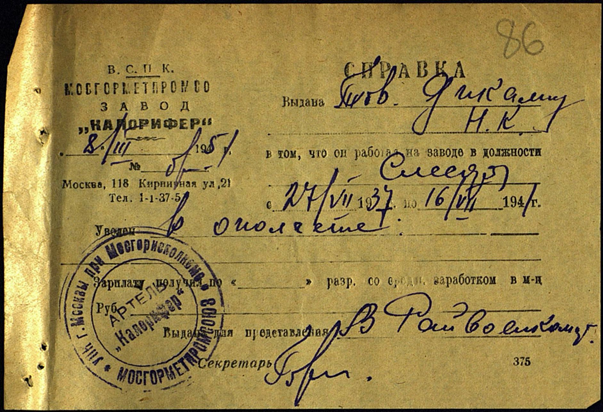 86
В. С. П. К.
МОСГОРМЕТПРОМСО
ЗАВОД
„КАЛОРИФЕР“
8/III 1951
№ б/н
Москва, 118 Кирпичная ул, 21
Тел. 1-1-37-5
СПРАВКА
Выдана Тов. Фикалиу
Н. К.
в том, что он работал на заводе в должности
Слесаря
с 27/VII 1937 по 16/VII 1941 г.
Уволен в ополчение.
Зарплату получил по « » разр. со средн. заработком в м-ц
Руб
Выдана для представления В Райвоенкомат.
Секретарь
375
УПК г. Москвы при Мосгорисполкоме
МОСГОРМЕТПРОМСОЮЗ
АРТЕЛЬ
„Калорифер“